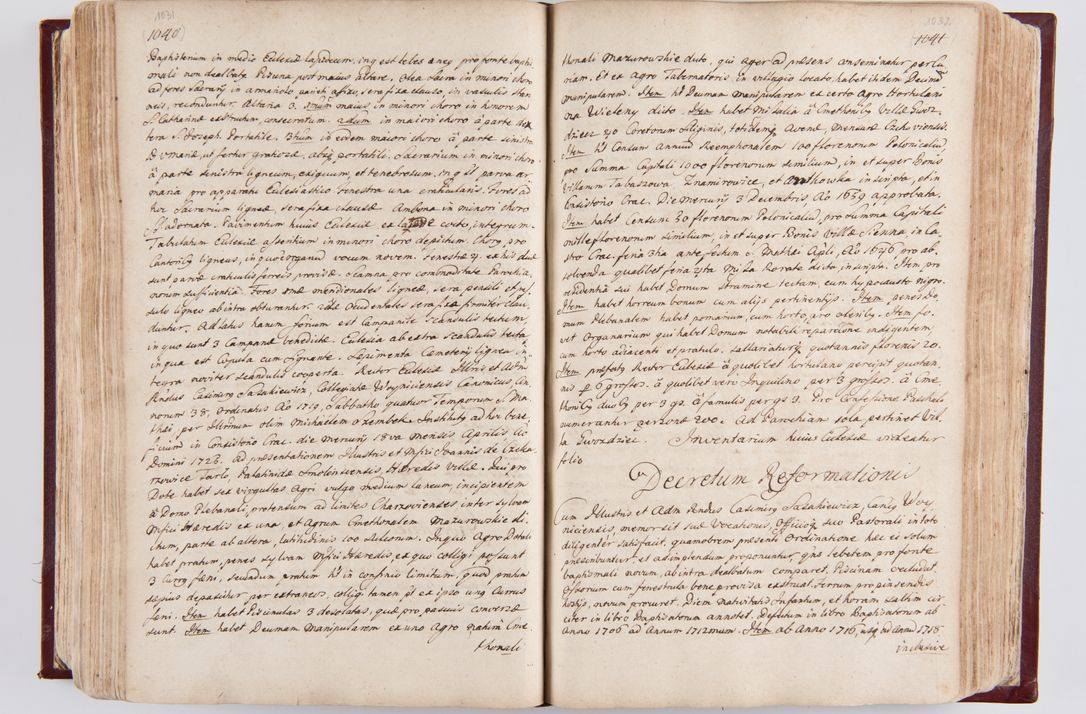 1031
1040
Baptisterium in medio Ecclesiæ lapideum, in q est lebes æneg pro fonte baptis
mali non dealbatg. Piscina post maius altare. Olea Sacra in minori choro
ad fores Sacrarij in armariolo parieti afixo, sera fixa clauso, in vasculis stan
neis, reconduntur. Altaria 3. 1mum maius in minori choro in honorem
S. Catharinæ extructum, consecratum. 2dum in maiori choro à parte dex
tera S. Joseph. Portatile. 3tium in eodem maiori choro à parte sinistra
B. V. Mariæ, ut fertur gratiosæ, absq portatili. Sacrarium in minori choro
à parte sinistra ligneum, exiguum, et tenebrosum, in q st parva ar
maria pro apparatu Ecclesiastico fenestra una craticularis. Fores ad
hoc Sacrarium ligneæ, sera fixa clausæ. Ambona in minori choro
adornata. Pavimentum huius Ecclesiæ ex latere cocto, integrum.
Tabulatum Ecclesiæ asseritium in minori choro depictum. Chorg pro
Cantorib ligneus, in quo organum vocum novem. Fenestræ 7. ex his duæ
sunt parvæ craticulis ferreis provisæ. Scamna pro commoditate Parochia
norum sufficientia. Fores unæ meridionales ligneæ, sera pensili et pes
sulo ligneo ab intra obturantur. 2dæ Occidentales sera fixa firmiter clau
duntur. Ad latus harum forium est Campanile scandulis tectum,
in quo sunt 3 Campanæ benedictæ. Ecclesia ab extra Scandulis tecta
in qua est Copula cum signante. Sepimenta Cemeterij lignea, in
tegra noviter scandulis cooperta. Rector Ecclesiæ Illris et Adm
Rndus Casimirg Sasakiewicz, Collegiatæ Woyniciensis Canonicus, An
norum 38, Ordinatus Ao 1719, Sabbatho quatuor Temporum S. Ma
thæi, per Illmum olim Michaelem Szembek. Institutg ad hoc bene
ficium in Consistorio Crac. die Mercurij 18va mensis Aprilis Ao
Domini 1726. ad præsentationem Illustris et Mfici Joannis de Czeka
rzowice Tarlo, Palatinidæ Smolenscensis, Hæredis Villæ. Qui pro
Dote habet sex virgultas agri vulgo medium laneum, incipientem
à Domo Plebanali, protensum ad limites Charzovienses inter sylvam
Mfici Hæredis ex una, et Agrum Cmethonalem Mazurowskie di
ctum, parte ab altera, latitudinis 100 Sulcorum. In quo Agro Dotali
habet pratum, penes sylvam Mfici Hæredis, ex quo colligi possunt
3 Currg fæni, secundum pratum ht in confinio limitum, quod pratum
sæpius depascitur per extraneos, colligi tamen pt ex ipso ung Currus
fæni. Item habet Piscinulas 3 desolatas, quæ pro pascuis conversæ
sunt. Item habet Decimam Manipularem ex uno Agro Rahim Cme
thonali
1032
1041
thonali Mazurowskie dicto, qui ager ad præsens conseminatur per Cu
riam. Et ex agro Tabernatoris in villagio locato, habet itidem Decimam
manipularem. Item ht Decimam manipularem ex certo Agro Hortulani
na Wieleny dicto. Item habet Missalia à Cmethonib Villæ Gwoz
dziec 40 Coretorum Siliginis, totidemq Avenæ, Mensuræ Czchoviensis.
Item ht Censum Annuum Reemptionalem 100 florenorum Polonicalium,
pro Summa Capitali 1000 florenorum similium, in et super Bonis
Villarum Tabaszowa, Znamirowice, et Witkowka inscripta, et in
Consistorio Crac. Die Mercurij 3 Decembris, Ao 1659 approbata.
Item habet Censum 30 florenorum Polonicalium, pro Summa Capitali
mille florenorum similium, in et super Bonis Villæ Sienna, in Ca
stro Crac. feria 3tia ante festum S. Mathæi Apli, Ao 1646 pro ab
solvenda qualibet feria 4ta Missa Rorate dicta, inscripta. Item, pro
residentia sui habet Domum Stramine tectam, cum hypocausto nigro.
Item habet horreum bonum cum alijs pertinentijs. Item, penes do
mum Plebanalem habet pomarium, cum horto pro olerib. Item fo
vet Organarium qui habet Domum notabili reparaõne indigentem,
cum horto adiacente et pratulo. Sallariaturq quotannis florenis 20.
Item præfatg Rector Ecclesiæ à quolibet hortulano percipit quotan
nis p 6 grossos. à quolibet vero Inquilino per 3 grossos. à Cme
thonib duob per 3 gs. à famulis per gs 3. Pro Confessione Paschali
numerantur personæ 200. Ad Parochiam sola pertinet Vil
la Gwozdziec. Inventarium huius Ecclesiæ videatur
folio
Decretum Reformationis
Cum Illustris et Adm Rndus Casimirg Sasakiewicz, Cancg Woy
niciensis, memor sit suæ Vocationis, Officioq suo Pastorali in toto
diligenter satisfaciat, quamobrem præsenti Ordinatione hæc ei solum
præscribuntur, et adimplenda proponuntur, qtns lebetem pro fonte
baptismali novum, ab intra dealbatum comparet. Piscinam occludat.
Ossorium cum fenestula bene provisa exstruat. Ferrum pro pinsendis
hostijs, novum procuret. Diem Nativitatis Infantum, et horam saltim cir
citer in libro Baptisatorum annotet. Defectum in libro Baptisatorum ab
Anno 1706 ad Annum 1712mum. Item ab Anno 1716, usq ad Annum 1718
inclusive